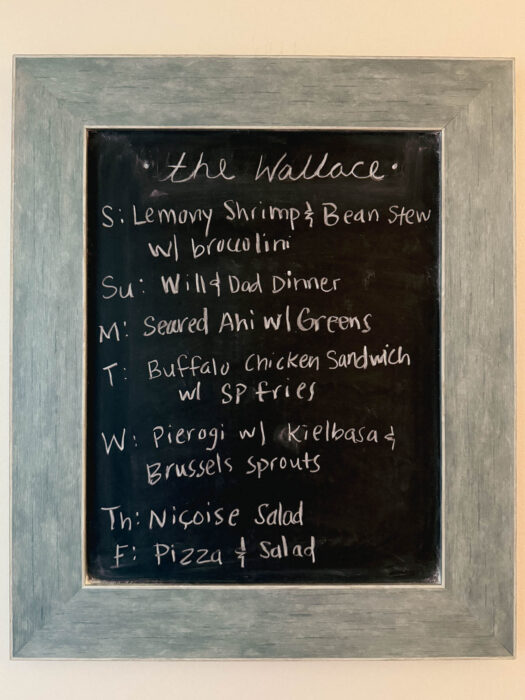 · the Wallace ·
S: Lemony Shrimp & Bean Stew
w/ broccolini
Su: Will & Dad Dinner
M: Seared Ahi w/ Greens
T: Buffalo Chicken Sandwich
w/ SP fries
W: Pierogi w/ Kielbasa &
Brussels sprouts
Th: Niçoise Salad
F: Pizza & Salad